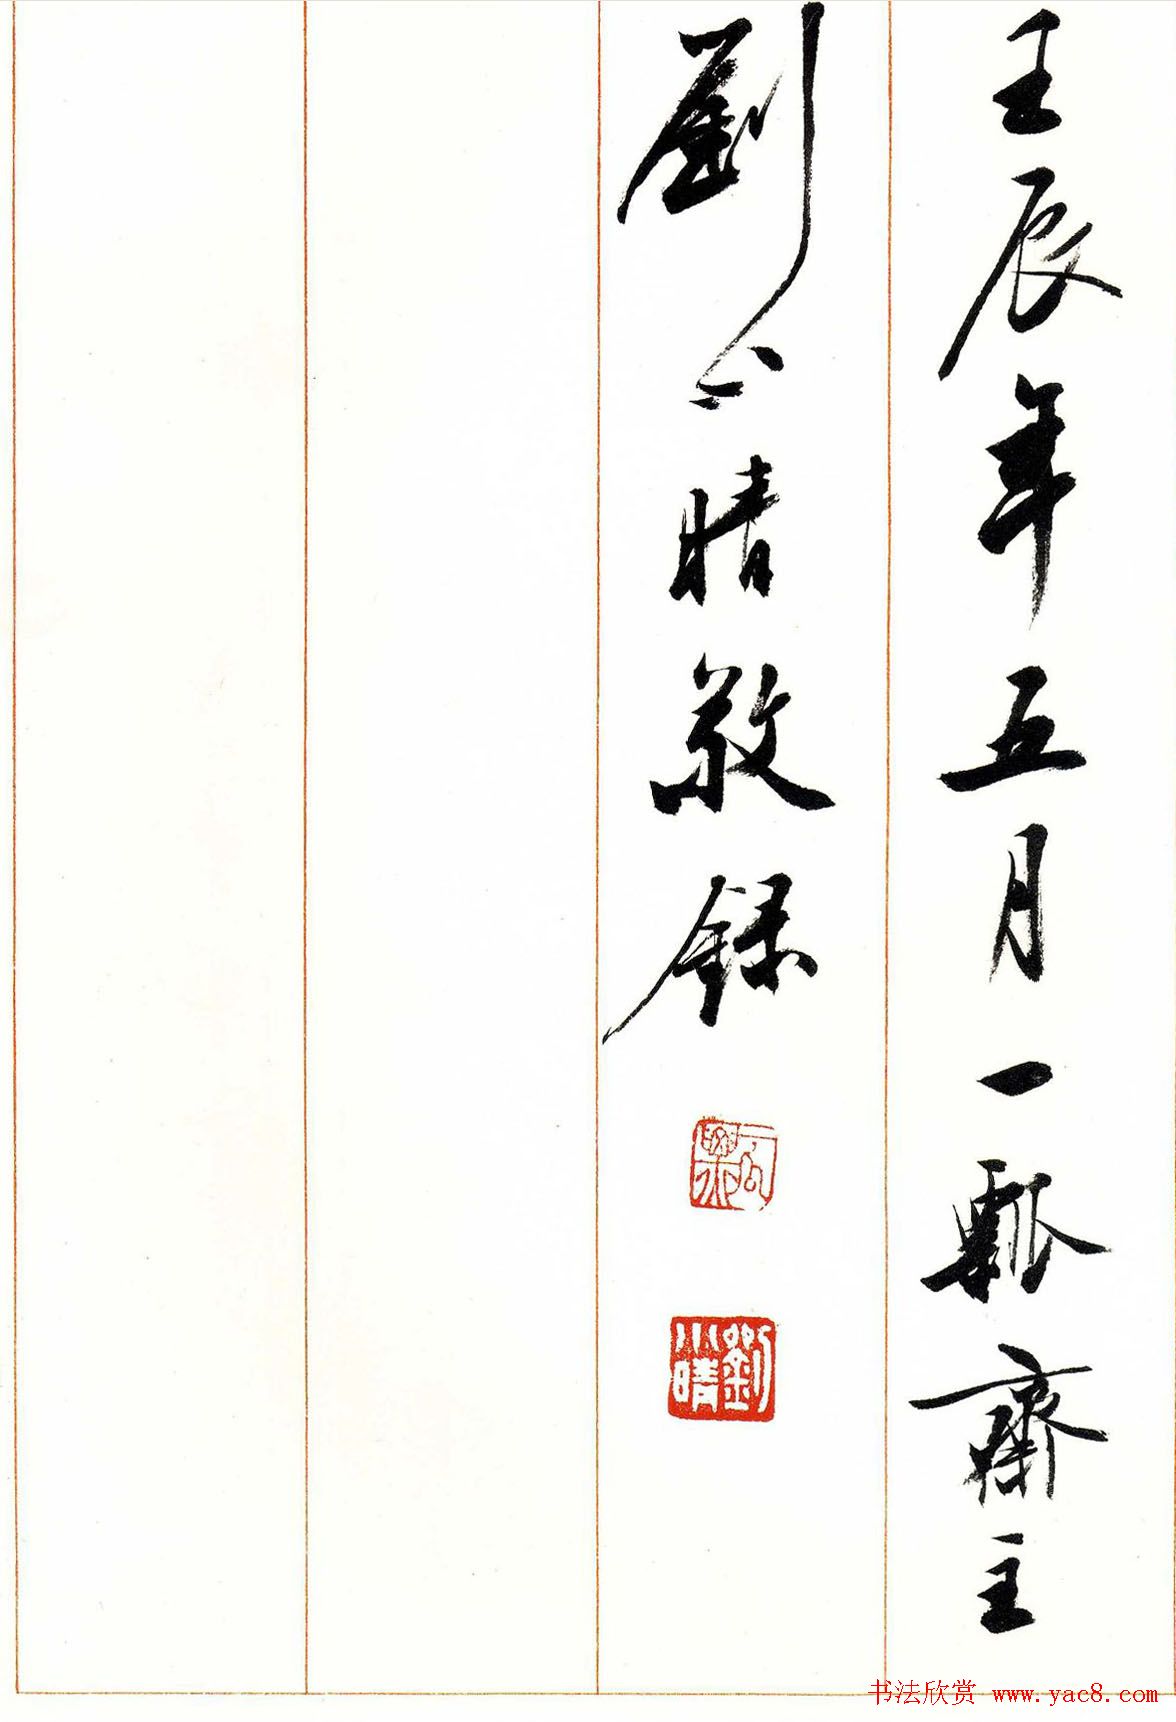 壬辰年五月一瓢齋主
劉小晴敬録
劉小晴
书法欣赏 www.yac8.com